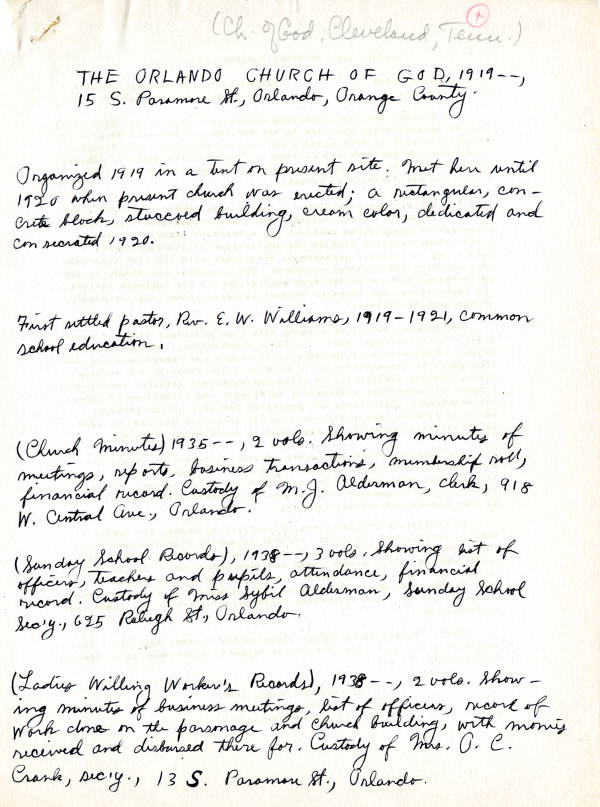 (Ch. of God, Cleveland, Tenn.)
THE ORLANDO CHURCH OF GOD, 1919--,
15 S. Paramore St., Orlando, Orange County.
Organized 1919 in a tent on present site. Met here until
1920 when present church was erected; a rectangular, con-
crete block, stuccoed building, cream color, dedicated and
consecrated 1920.
First settled pastor, Rev. E. W. Williams, 1919-1921, common
school education.
(Church Minutes) 1935--, 2 vols. Showing minutes of
meetings, reports, business transactions, membership roll,
financial record. Custody of M.J. Alderman, clerk, 918
W. Central Ave., Orlando.
(Sunday School Records), 1938--, 3 vols. Showing list of
officers, teachers and pupils, attendance, financial
record. Custody of Miss Sybil Alderman, Sunday School
Sec'y., 625 Raleigh St., Orlando.
(Ladies Willing Worker's Records), 1938--, 2 vols. Show-
ing minutes of business meetings, list of officers, record of
work done on the parsonage and church building, with monies
received and disbursed there for. Custody of Mrs. O. C.
Crank, sec'y., 13 S. Paramore St., Orlando.